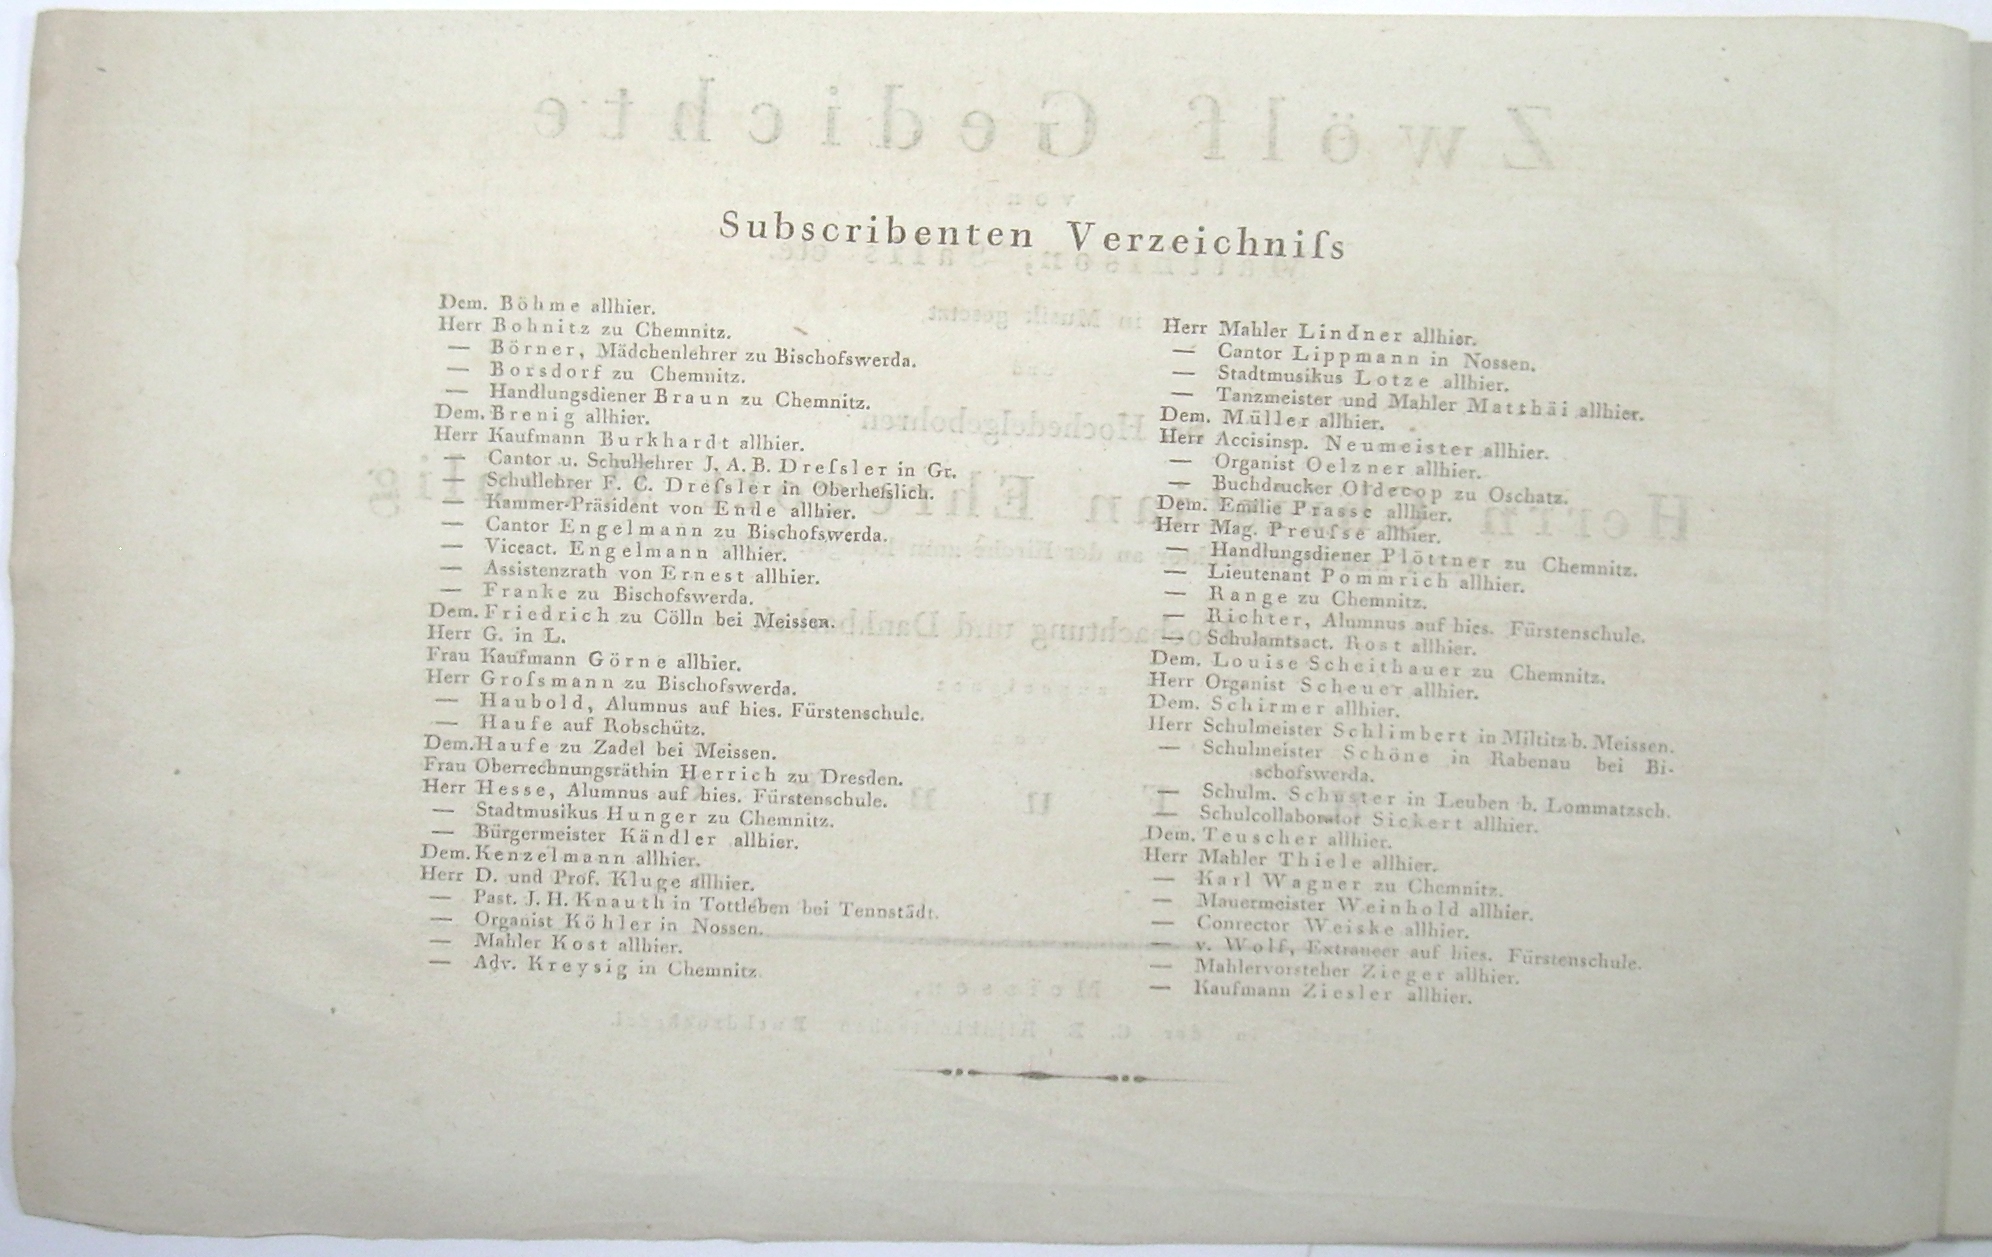 Subscribenten Verzeichniſs
Dem. Böhme allhier.
Herr Bohnitz zu Chemnitz.
— Börner, Mädchenlehrer zu Bischofswerda.
— Borsdorf zu Chemnitz.
— Handlungsdiener Braun zu Chemnitz.
Dem. Brenig allhier.
Herr Kaufmann Burkhardt allhier.
— Cantor u. Schullehrer J. A. B. Dreſsler in Gr.
— Schullehrer F. C. Dreſsler in Oberheſslich.
— Kammer-Präsident von Ende allhier.
— Cantor Engelmann zu Bischofswerda.
— Viceact. Engelmann allhier.
— Assistenzrath von Ernest allhier.
— Franke zu Bischofswerda.
Dem. Friedrich zu Cölln bei Meissen.
Herr G. in L.
Frau Kaufmann Görne allhier.
Herr Groſsmann zu Bischofswerda.
— Haubold, Alumnus auf hies. Fürstenschule.
— Haufe auf Robschütz.
Dem. Haufe zu Zadel bei Meissen.
Frau Oberrechnungsräthin Herrich zu Dresden.
Herr Hesse, Alumnus auf hies. Fürstenschule.
— Stadtmusikus Hunger zu Chemnitz.
— Bürgermeister Kändler allhier.
Dem. Kenzelmann allhier.
Herr D. und Prof. Kluge allhier.
— Past. J. H. Knauth in Tottleben bei Tennstädt.
— Organist Köhler in Nossen.
— Mahler Kost allhier.
— Adv. Kreysig in Chemnitz
Herr Mahler Lindner allhier.
— Cantor Lippmann in Nossen.
— Stadtmusikus Lotze allhier.
— Tanzmeister und Mahler Matthäi allhier.
Dem. Müller allhier.
Herr Accisinsp. Neumeister allhier.
— Organist Oelzner allhier.
— Buchdrucker Oldecop zu Oschatz.
Dem. Emilie Prasse allhier.
Herr Mag. Preuſse allhier.
— Handlungsdiener Plöttner zu Chemnitz.
— Lieutenant Pommrich allhier.
— Range zu Chemnitz.
— Richter, Alumnus auf hies. Fürstenschule.
— Schulamtsact. Rost allhier.
Dem. Louise Scheithauer zu Chemnitz.
Herr Organist Scheuer allhier.
Dem. Schirmer allhier.
Herr Schulmeister Schlimbert in Miltitz b. Meissen.
— Schulmeister Schöne in Rabenau bei Bi-
schofswerda.
— Schulm. Schuster in Leuben b. Lommatzsch.
— Schulcollaborator Sickert allhier.
Dem. Teuscher allhier.
Herr Mahler Thiele allhier.
— Karl Wagner zu Chemnitz.
— Mauermeister Weinhold allhier.
— Conrector Weiske allhier.
— v. Wolf, Extraneer auf hies. Fürstenschule.
— Mahlervorsteher Zieger allhier.
— Kaufmann Ziesler allhier.